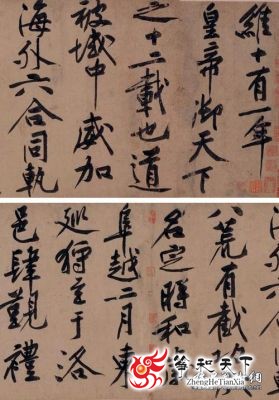 維十有一年
皇帝御天下
之十二載也道
被域中威加
海外六合同軌
外六合
八荒有截
名定時和
阜越二月東
巡狩至于洛
邑肆覲禮
筝和天下
ZhengHeTianXia